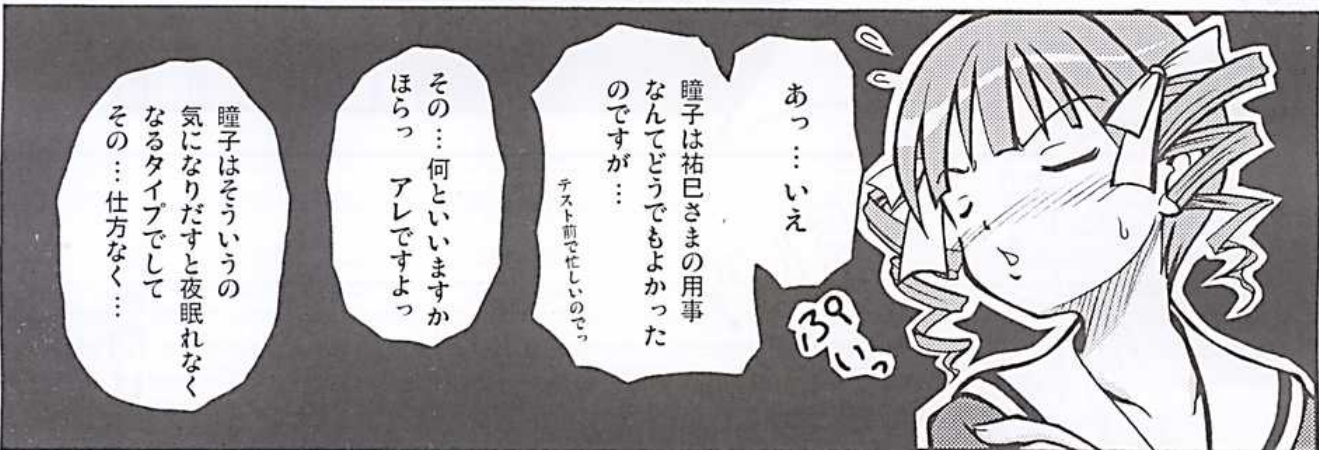 あっ…いえ
瞳子は祐巳さまの用事
なんてどうでもよかった
のですが…
テスト前で忙しいのでっ
ぷいっ
その…何といいますか
ほらっ　アレですよっ
瞳子はそういうの
気になりだすと夜眠れなく
なるタイプでして
その…仕方なく…